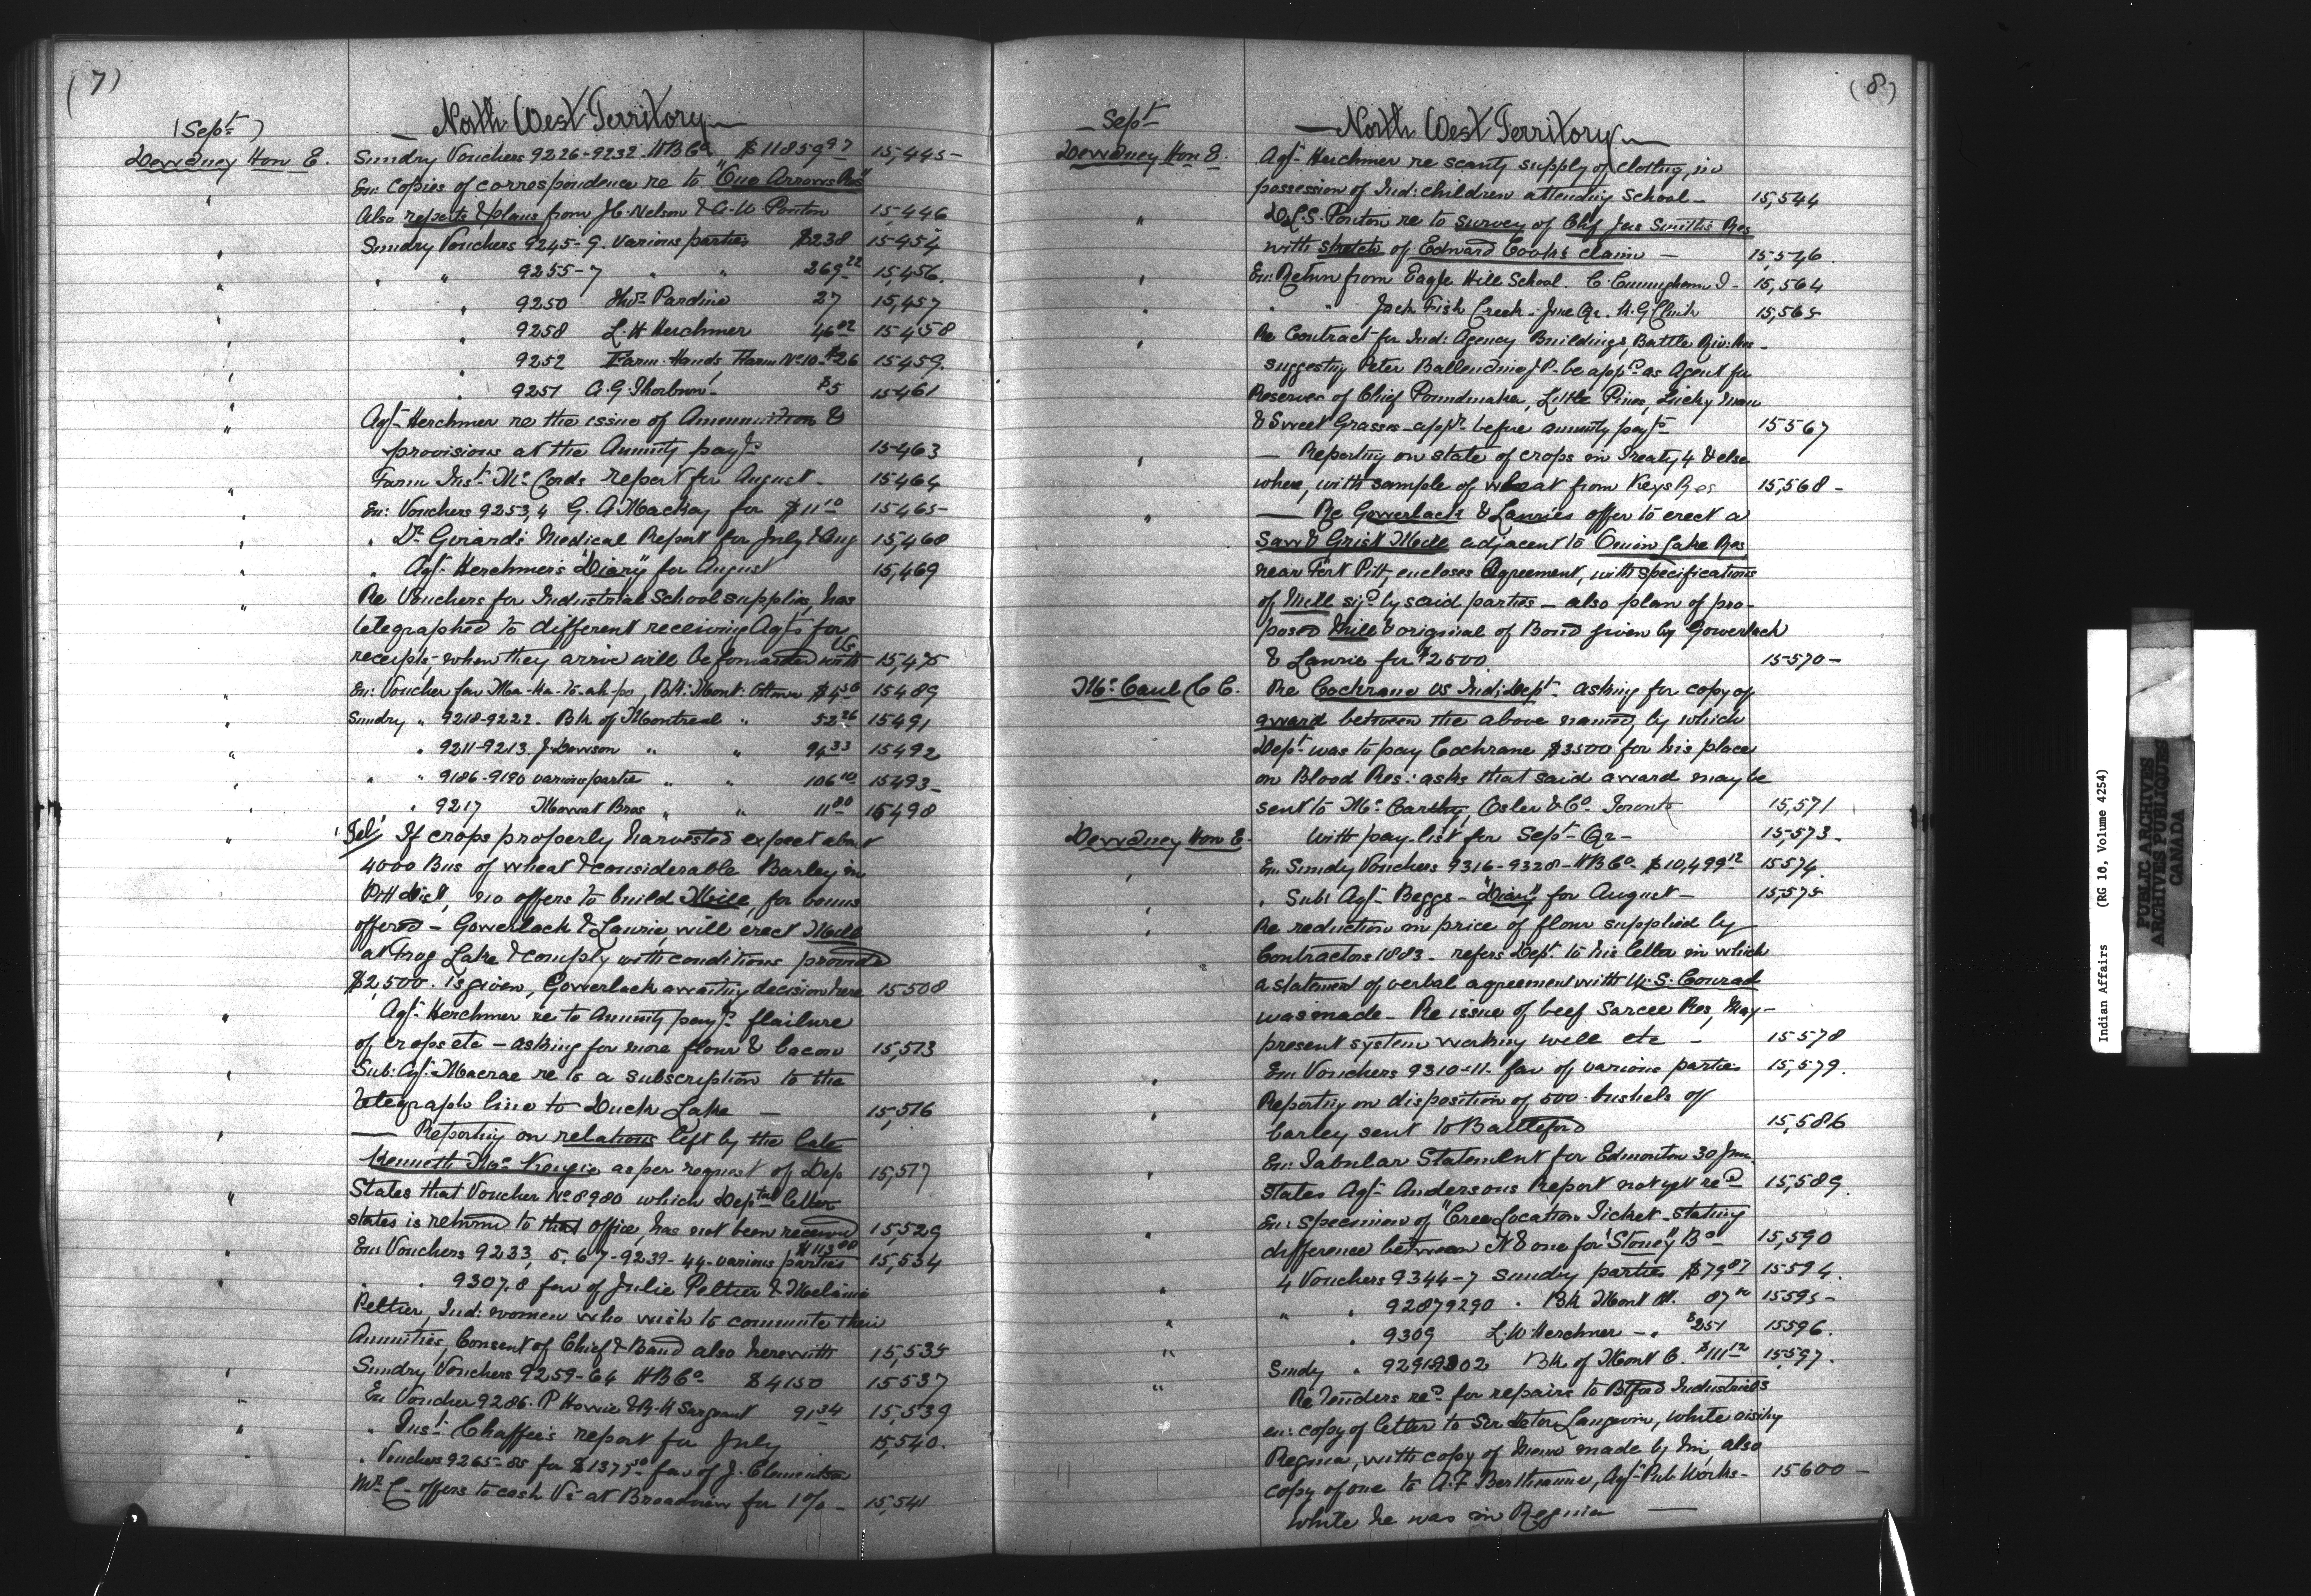 (7)
North West Territory
(Sept)
Dewdney Hon E. Sundry Vouchers 9226-9232 HBCo $11859 97 15,445
" En: copies of correspondence re to "One Arrows Res"
Also reports & plans from J.C. Nelson & A.W. Ponton 15,446
" Sundry Vouchers 9245-9. Various parties $238 15454
" " " 9255-7 " " 269 22 15,456.
" " 9250 Thos. Pardino 27 15,457
" " 9258 L.W Herchmer 46 02 15458
" " 9252 Farm Hands, Farm No 10 $26 15459.
" " 9251 A.G. Thorburn $5 15461
" Agt Herchmer re the issue of Ammunition &
provisions at the Annuity payts 15463
" Farm Inst. Mc Cords report for August 15464
" En: Vouchers 9253,4 G. A Mackay for $11 10 15465
" " Dr Girard's Medical Report for July & Aug 15,468
" " Agt Herchmer's "Diary" for August 15,469
" Re Vouchers for Industrial School supplies, has
telegraphed to different receiving Agts for
receipts, when they arrive will be forwarded with Vs 15,475
" En: Voucher fav Ma-ka-to-ah-po, Bk: Mont: Ottawa 15489
" Sundry " 9218-9222. Bk of Montreal " 52 26 15491
" " 9211-9213 J Dawson " " 94 33 15492
" " " 9186-9190 various parties " " 106 10 15493
" " 9217 Mowat Bros " " 11 80 15498
" Tel, If crops properly harvested expect about
4000 Bus of wheat & considerable Barley in
Pitt Dist, no offers to build Mill, for bonus
offered - Gowerlack & Laurie, will erect Mill
at Frog Lake & comply with conditions provided
$2,500. is given, Gowerlack awaiting decision here 15508
" Agt Herchmer re to Annuity payts flailure
of crops etc - asking for more flour & bacon 15,513
" Sub: Agt. Macrae re to a subscription to the
telegraph line to Duck Lake — 15,516
" — Reporting on relations left by the late
Kenneth McKenzie as per request of Dep 15,517
" States that Voucher No 8980 which Deptal letter
states is returned to that office, has not been received 15,529
" En: Vouchers 9233, 5, 6 7 - 9239 - 44 - various parties $113 00 15,534
" " 9307,8 fav of Julie Peltier & Melanie
Peltier, Ind: women who wish to commute their
Annuities, Consent of Chief & Band also herewith 15,535
" Sundry Vouchers 9259-64 HBCo $4150 15537
" En Voucher 9286. P Howie & R.H Sargeant 91 34 15,539
" " Inst: Chaffee's report for July 15,540.
" Vouchers 9265-85 for fav of J. Clementson
Mr C- offers to cash Vs at Broadview for 1% - 15,541
(8)
North West Territory
Sept
Dewdney Hon E. Agt Herchmer re scanty supply of clothing, in
possession of Ind: children attending School — 15,544
" D.L.S. Ponton re to survey of Chf Jas Smith's Res
with sketch of Edward Cook's claim — 15,546.
" En: Return from Eagle Hill School. C. Cunningham J - 15,564
" " " Jack Fish Creek - June Qr. 15,565
" Re Contract for Ind: Agency Buildings, Battle Riv: Res -
suggesting Peter Ballendine J.P. be appd as Agent for
Reserves of Chief Poundmaker, Little Pines, Lucky Man
& Sweet Grasses - before annuity payts 15567
" — Reporting on state of crops in Treaty 4 & else
where, with sample of wheat from Keys Res 15,568 -
" — Re Gowerlack & Lauries offer to erect a
Saw & Grist Mill adjacent to Onion Lake Res,
near Fort Pitt, encloses Agreement, with specifications
of Mill sigd by said parties - also plan of pro-
posed Mill & original of Bond given by Gowerlack
& Laurie for $2500. 15570 -
Mc Caul C C. Re Cochrane vs Ind: Dept. asking for copy of
award between the above named, by which
Dept was to pay Cochrane $3500 for his place
on Blood Res: asks that said award may be
sent to Mc Carthy, Osler & Co. Toronto 15,571
Dewdney Hon E. With pay-list for Sept - Qr - 15,573 -
" En Sundry Vouchers 9316-9328 - HBCo $10,499 12 15574.
" " Sub: Agt Beggs - "Diary" for August — 15,575
" Re reduction in price of flour supplied by
Contractors 1883 - refers Dept to his letter in which
a statement of verbal agreement with W.S. Conrad
was made - Re issue of beef Sarcee Res, May -
present system working well etc - 15578
" En Vouchers 9310-11 - fav of various parties 15,579.
" Reporting on disposition of 500 bushels of
barley sent to Battleford 15,586
" En: Tabular Statement for Edmonton 30 June
states Agt Andersons Report not yet recd 15,589.
" En: specimen of "Cree Location Ticket - stating
difference between it & one for "Stoney" Bd 15,590
" 4 Vouchers 9344-7 sundry parties $79 87 15594.
" " " 9287 9290 " Bk Mont 15595 -
" " 9309 L.W Herchmer - " $251 15596.
" Sundy " Bk of Mont C. $111 12 15597.
" Re Tenders recd for repairs to Btford Industrial S
en: copy of letter to Sir Hector Langevin, while visiting
Regina, with copy of memo made by him, also
copy of one to Agt Pub Works - 15600 -
while he was in Regina —
Indian Affairs (RG 10, Volume 4254)
PUBLIC ARCHIVES
ARCHIVES PUBLIQUES
CANADA